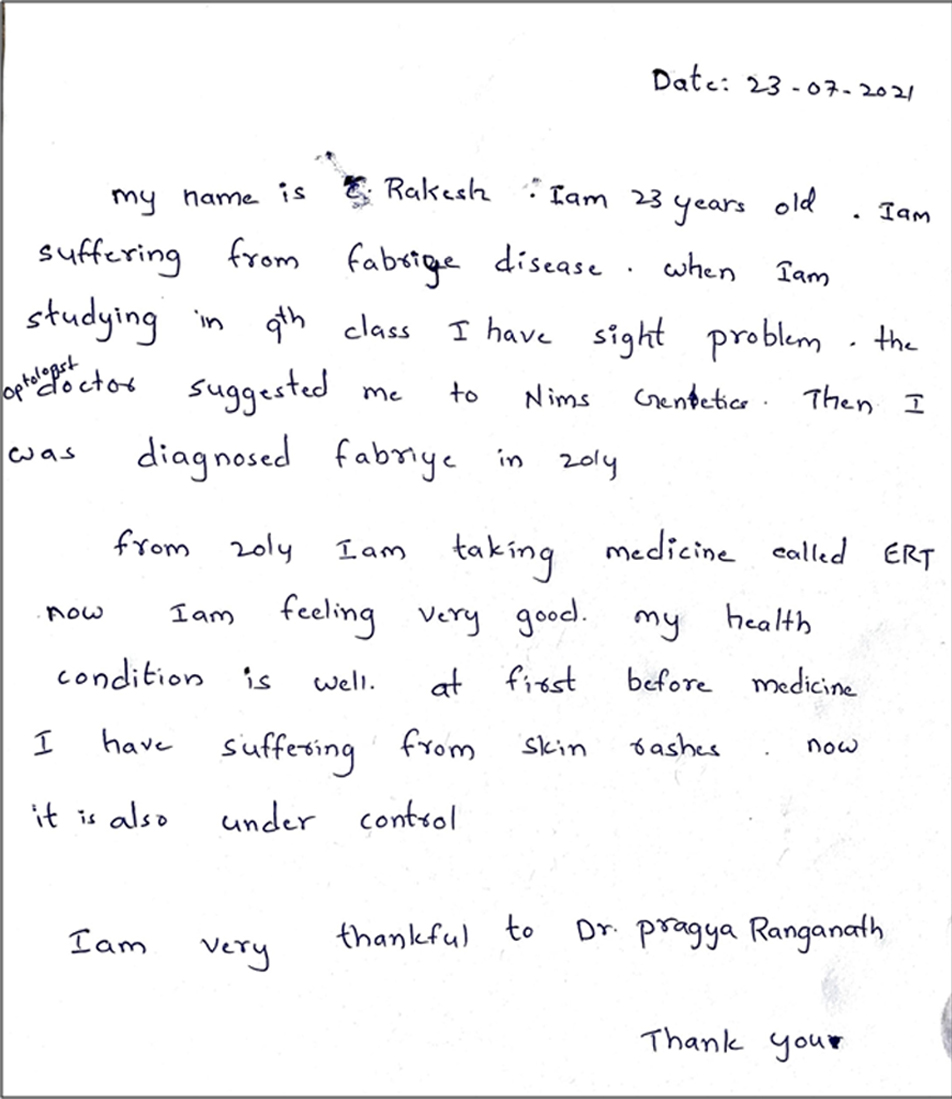 Date: 23-07-2021
my name is Rakesh . Iam 23 years old . Iam
suffering from fabrige disease . when Iam
studying in 9th class I have sight problem . the
optologst doctor suggested me to Nims . Then I
was diagnosed fabriye in 2014
from 2014 Iam taking medicine called ERT
now Iam feeling very good. my health
condition is well. at first before medicine
I have suffering from skin rashes . now
it is also under control
Iam very thankful to Dr. pragya Ranganath
Thank you